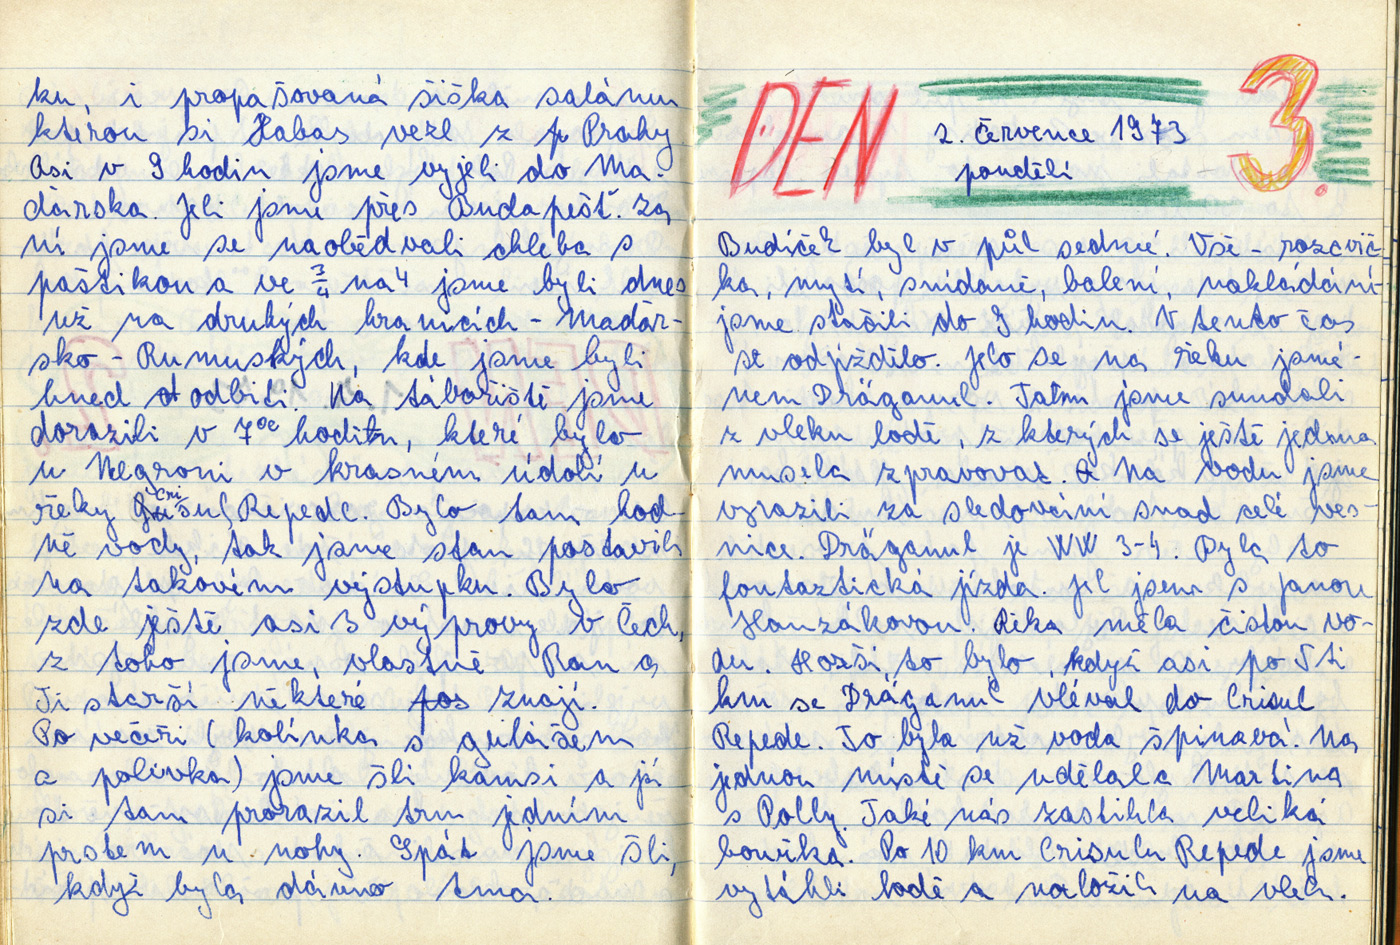 ku, i propašovaná šiška salámu
kterou si Habas vezl z Prahy
Asi v 9 hodin jsme vyjeli do Ma-
ďárska. Jeli jsme přes Budapešť. Za
ní jsme se naobědvali chleba s
paštikou a ve 3/4 na 4 jsme byli dnes
už na druhých hranicích - Maďár-
sko - Rumuských, kde jsme byli
hned odbiti. Na tábořiště jsme
dorazili v 7oo hodin, které bylo
u Negroni v krasném údolí u
řeky Crişul Repede. Bylo tam hod-
ně vody, tak jsme stan postavili
na takovém výstupku. Bylo
zde ještě asi 3 výpravy v Čech,
z toho jsme vlastně Ran a
Ti starší některé znají.
Po večeři (kolínka s gulášem
a polívka) jsme šli kamsi a já
si tam prorazil trn jedním
prstem u nohy. Spát jsme šli,
když byla dávno tma.
DEN 3.
2. července 1973
pondělí
Budíček byl v půl sedmé. Vše - rozcvič-
ka, mytí, snídaně, balení, nakládání
jsme stačili do 9 hodin. V tento čas
se odjíždělo. Jelo se na řeku jmé-
nem Drăganul. Tam jsme sundali
z vleku lodě, z kterých se ještě jedna
musela zpravovat. Na vodu jsme
vyrazili za sledování snad celé ves-
nice. Drăganul je WW 3-4. Byla to
fantaztická jízda. Jel jsem s Janou
Hanzákovou. Řeka měla čistou vo-
du. Hozší to bylo, když asi po 5ti
km se Drăganul vléval do Crisul
Repede. To byla už voda špinavá. Na
jednom místě se udělala Martina
s Polly. Také nás zastihla veliká
bouřka. Po 10 km Crisulu Repede jsme
vytáhli lodě a naložili na vlek.